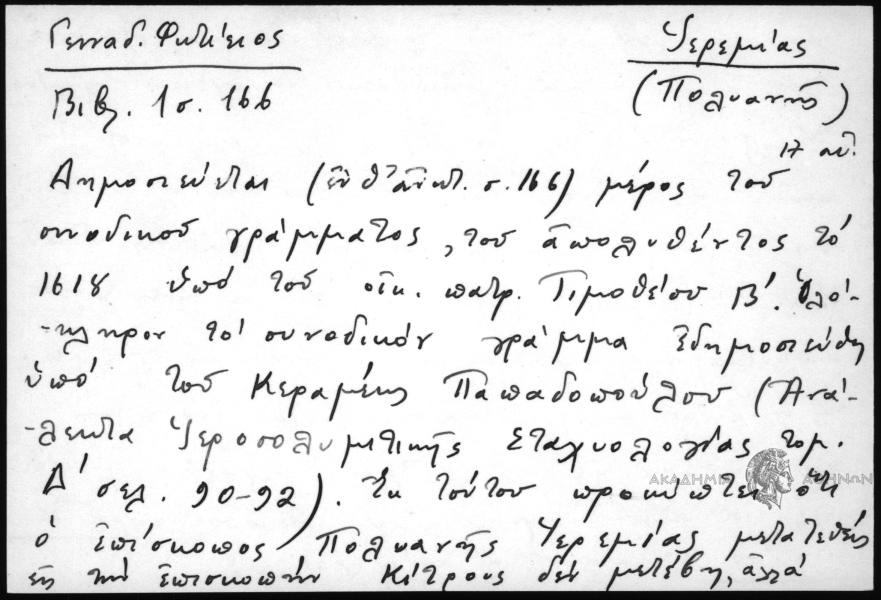 Γενναδ. Φυτίειος
Ἱερεμίας
Βιβλ. 1 σ. 166
(Πολυανῆς)
17 αὐτ.
Δημοσιεύεται (ἐν θ' ἀνωτ. σ. 166) μέρος τοῦ
συνοδικοῦ γράμματος, τοῦ ἀπολυθέντος τό
1618 ὑπό τοῦ οἰκ. πατρ. Τιμοθέου Β'. Ὁλό-
-κληρον τό συνοδικόν γράμμα ἐδημοσιεύθη
ὑπό τοῦ Κεραμέως Παπαδοπούλου (Ἀνά-
-λεκτα Ἱεροσολυμιτικῆς Σταχυολογίας τομ.
Δ' σελ. 90-92). Ἐκ τούτου προκύπτει ὅτι
ΑΚΑΔΗΜΙΑ ΑΘΗΝΩΝ
ὁ ἐπίσκοπος Πολυανῆς Ἱερεμίας μετατεθείς
εἰς τήν ἐπισκοπήν Κίτρους δέν μετέβη, ἀλλά